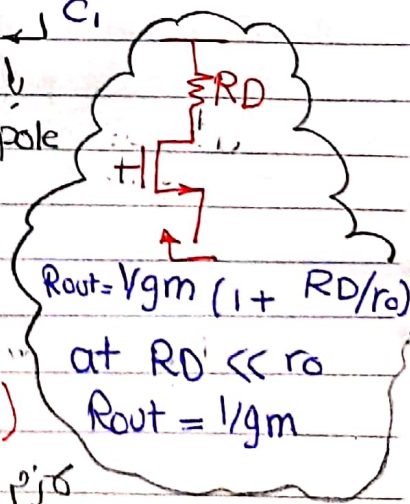 C1
pole
RD
Rout = 1/gm (1 + RD/ro)
at RD << ro
Rout = 1/gm